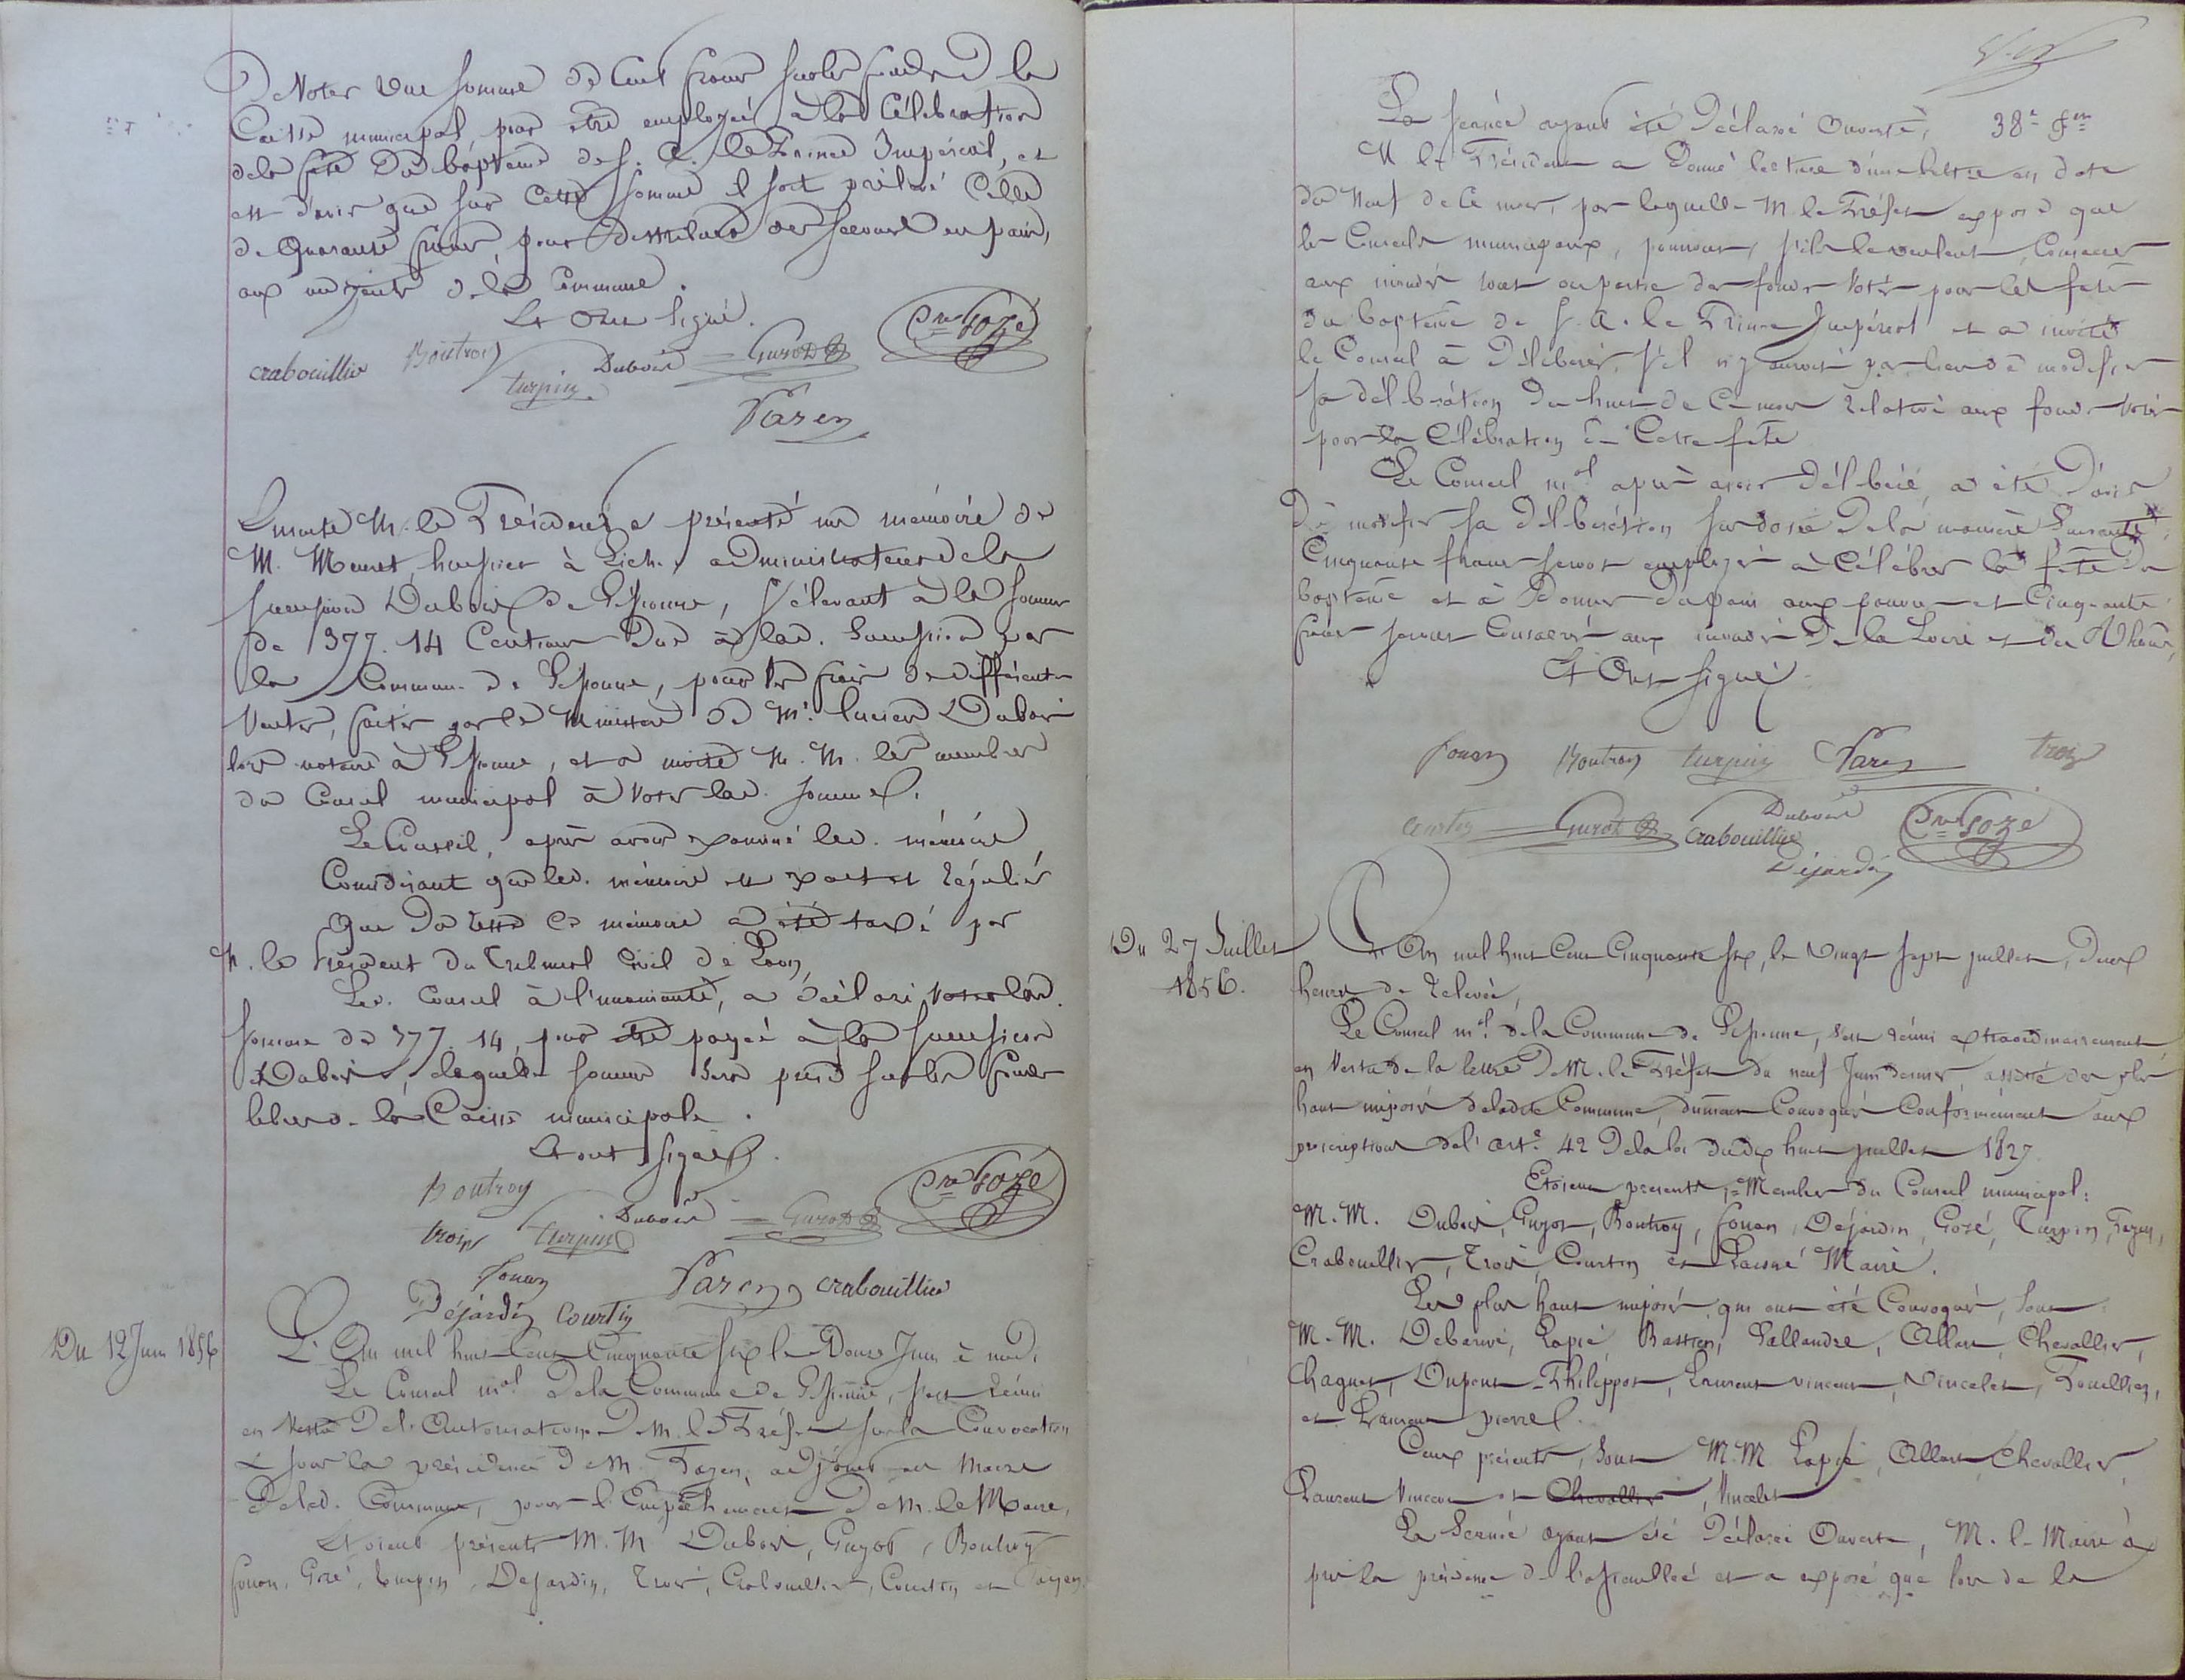 De Voter une somme de Cent francs sur les fonds de la
Caisse municipale pour être employée à la Célébration
de la fête du baptême de S. A. le Prince Impérial, et
est d'avis que sur cette somme il soit prélevé Celle
de Quarante francs, pour distribuer des secours en pain,
aux indigents de la Commune.
Et Ont Signé.
Crabouillier Boutroy turpin Dubois Guyot Gozé
Fazen
Ensuite M. le Président a présenté un mémoire de
M. Menret, huissier à administrateur de la
succession Dubois de Sissonne, s'élevant à la somme
de 377. 14 Centimes due à lad. Succession par
la Commune de Sissonne, pour les frais de différentes
Ventes, faites par le Ministère de Mr. Lucien Dubois
lors notaire à Sissonne, et a invité M. M. les membres
du Conseil municipal à voter lad. somme.
Le Conseil, après avoir examiné led. mémoire
Considérant que led. mémoire est exact et régulier
Que du reste ce mémoire a été taxé par
M. le Président du Tribunal Civil de Laon,
Led. Conseil à l'unanimité, a déclaré voter lad.
somme de 377. 14, pour être payée à la succession
Dubois, laquelle somme sera prise sur les fonds
libres de la Caisse municipale.
Et ont signé.
Boutroy
trois turpin Dubois Guyot Gozé
fouan Fazen Crabouillier
Déjardin Courtin
Du 12 Juin 1856
L'An mil huit Cent Cinquante Six le Douze Juin à midi
Le Conseil mal. De la Commune de Sissonne, s'est réuni
en vertu de l'Autorisation de M. le Préfet sur la Convocation
& sous la présidence de M. Fazen, adjoint au Maire
de lad. Commune, pour l'Empêchement de M. le Maire,
Etoient présents M. M. Dubois, Guyot, Boutroy
fouan, Gozé, turpin, Dejardin, Trois, Crabouillier, Courtin et Fazen.
38e fen
La séance ayant été Déclarée Ouverte,
M. le Président a Donné lecture d'une lettre en date
du Neuf de ce mois, par laquelle M. le Préfet expose que
les Conseils municipaux, peuvent, s'ils le veulent, Consacrer
aux inondés tout ou partie des fonds votés pour les fêtes
du baptême de S. A. le Prince Impérial et a invité
le Conseil à Délibérer, s'il n'y auroit pas lieu de modifier
sa délibération du huit de Ce mois Relative aux fonds votés
pour la Célébration de Cette fête
Le Conseil mal après avoir Délibéré, a été D'avis
De modifier sa délibération susdatée De la manière Suivante,
Cinquante francs seront employés à Célébrer la fête du
baptême et à Donner du pain aux pauvres et Cinquante
francs seront Consacrés aux inondés De la Loire et du Rhône,
Et Ont signé.
fouan Boutroy turpin Fazen trois
Courtin Guyot Crabouillier Dubois Gozé
Déjardin
Du 27 Juillet
1856.
L'An mil huit Cent Cinquante six, le vingt sept juillet, Deux
heures de Relevée,
Le Conseil mal. de la Commune de Sissonne, s'est réuni extraordinairement
en Vertu de la lettre De M. le Préfet du neuf Juin dernier, assisté des plus
haut imposés de ladite Commune, dument Convoqués Conformément aux
prescriptions de l'art. 42 De la loi du dix huit juillet 1837.
Etoient présents, = Membres du Conseil municipal:
M. M. Dubois, Guyot, Boutroy, fouan, Déjardin, Gozé, Turpin, Fazen,
Crabouillier, Trois, Courtin et Lainé Maire.
Les plus haut imposés qui ont été Convoqués, Sont
M. M. Debarive, Lapié, Bastien, Lallandre, Allart, Chevallier,
Chaguet, Dupont-Philippot, Laurent Vincent, Vincelet, Pouillien,
et Laurent pierre.
Ceux présents, Sont M. M. Lapié, Allart, Chevallier,
Laurent Vincent et Chevallier, Vincelet
La Séance ayant été Déclarée Ouverte, M. le Maire a
pris la présidence de l'assemblée et a exposé que lors de la